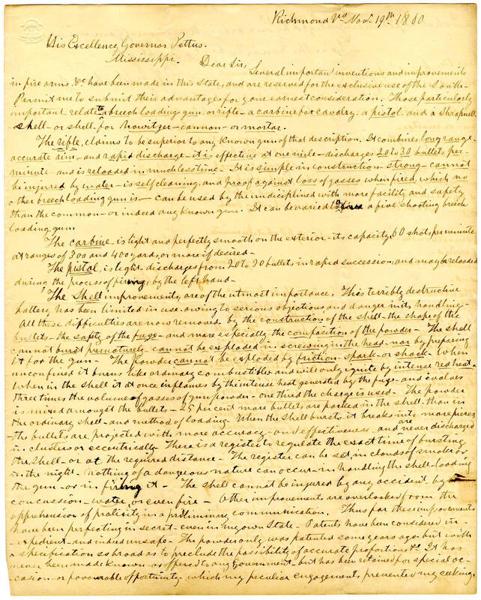 Richmond Va Nov. 19th 1860
His Excellency Governor Pettus.
Mississippi.
Dear Sir, Several important inventions and improvements
in fire arms &c have been made in this State, and are reserved for the exclusive use of the South-
Permit me to submit their advantages for your earnest consideration. Those particularly
important relate to breech loading gun or rifle - a carbine for cavalry, a pistol, and a Shrapnell
shell - or shell, for howitzer - cannon - or mortar.
The rifle, claims to be superior to any Known gun of that description. It combines long range
accurate aim, and rapid discharge - it is effective at one mile - discharges 20 to 30 bullets per
minute - and is reloaded in much less time. It is simple in construction - strong - cannot
be injured by water - is self cleaning, and proof against loss of gasses when fired, which no
other breech loading gun is - can be used by the undisciplined with more facility and safety
than the common - or indeed any known gun. It can be varied to a five shooting breech
loading gun.
The carbine, is light and perfectly smooth on the exterior - its capacity, 60 shots per minute
at ranges of 300 and 400 yards, or more if desired -
The pistol, is light, discharges from 20 to 30 bullets in rapid succession, and may be reloaded
during the process of firing, by the left hand -
The Shell improvements, are of the utmost importance. This terribly destructive
battery, has been limited in use, owing to serious objections and danger in its handling -
All these difficulties are now removed by the construction of the shell - the shape of the
bullets - the safety of the fuze - and more especially the composition of the powder - The shell
cannot burst prematurely - cannot be exploded in screwing in the head - nor by preparing
it for the gun. The powder cannot be exploded by friction - spark - or shock. When
unconfined it burns like ordinary combustibles and will only ignite by intense red heat -
When in the shell it at once inflames by the intense heat generated by the fuze - and evolves
three times the volume of gasses of gun powder - one third the charge is used. The powder
is mixed amongst the bullets - 25 percent more bullets are packed in the shell, than in
the ordinary shell - and method of loading. When the shell bursts, it breaks into more pieces
- the bullets are projected with more accuracy - and effectiveness - and are never discharged
in clusters or eccentrically. There is a register to regulate the exact time of bursting
the shell - or at the required distance. The register can be set in clouds of smoke or
in the night - nothing of a dangerous nature can occur - in handling the shell - loading
the gun - or in firing it - The shell cannot be injured by any accident by
concussion - water, or even fire - Other improvements are overlooked from the
apprehension of prolixity in a preliminary communication. Thus far these improvements
have been perfecting in secret - even in my own State - Patents have been considered in-
expedient - and indeed unsafe - The powder only was patented some years ago but with
a specification so broad as to preclude the possibility of accurate proportions &c. It has
never been made known or offered to any Government - but has been retained for special oc-
casion - or favourable opportunity which my peculiar engagements prevented my seeking.